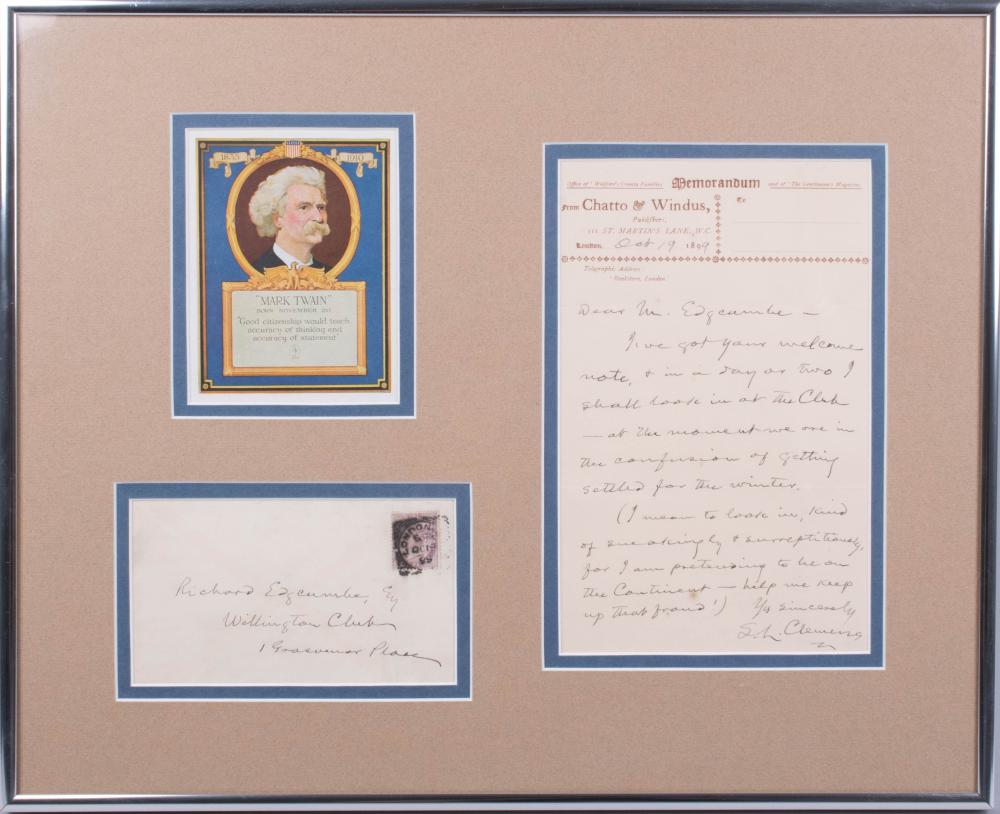 1835 1910
"MARK TWAIN"
BORN NOVEMBER
"Good citizenship would teach
accuracy of thinking and
accuracy of statement"
Office of "Walford's County Families Memorandum and of "The Gentleman's Magazine.
From Chatto & Windus, To
Publishers,
111 ST. MARTIN'S LANE, W.C.
London, Oct 19 1899
Telegraphic Address:
"Bookstore, London."
Dear Mr. Edgcumbe —
I've got your welcome
note, & in a day or two I
shall look in at the Club
— at the moment we are in
the confusion of getting
settled for the winter.
(I mean to look in, kind
of sneakingly & surreptitiously,
for I am pretending to be on
the Continent — help me keep
up that fraud!) Ys sincerely
S. L. Clemens
LONDON
OC 19
99
Richard Edgcumbe, Esq
Wellington Club
1 Grosvenor Place